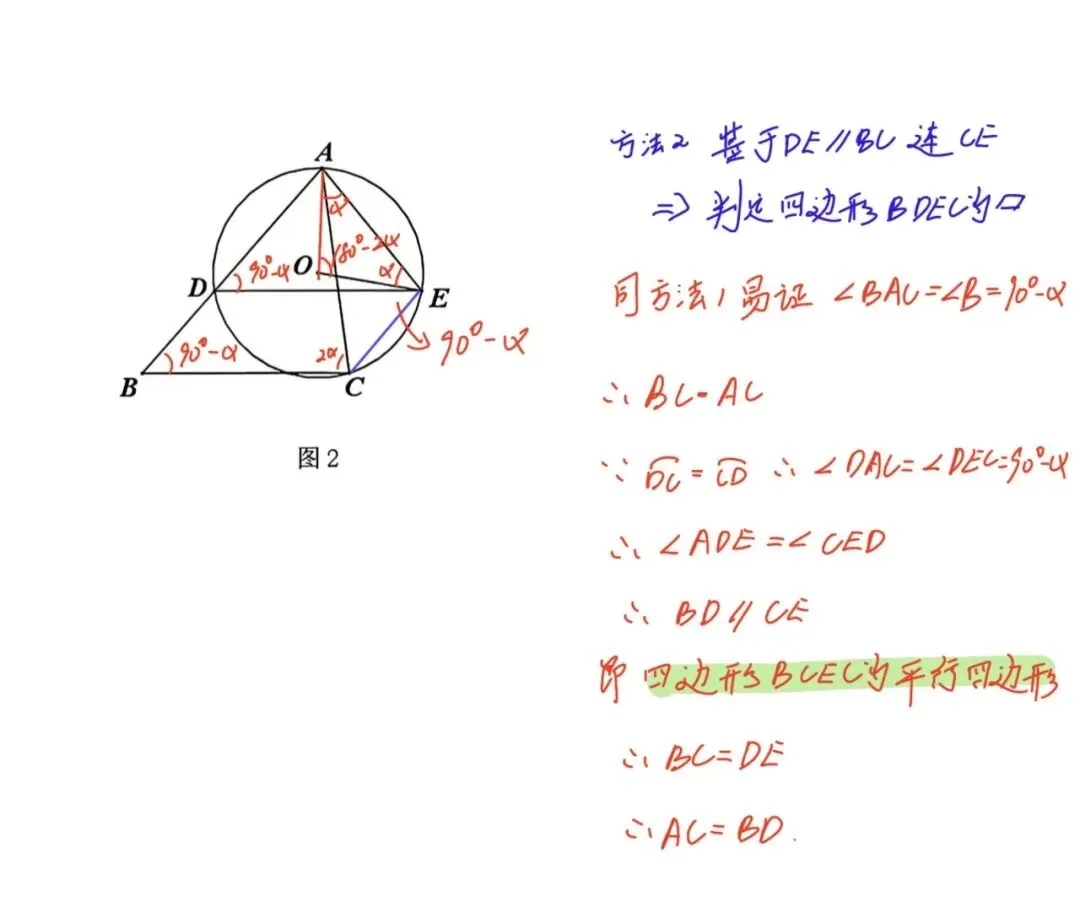 方法2 基于DE∥BC 连CE
⇒ 判定四边形BDEC为▱
同方法1易证 ∠BAC=∠B=90°-α
∴ BC=AC
∵ D͡C = C͡D ∴ ∠DAC=∠DEC=90°-α
∴ ∠ADE=∠CED
∴ BD∥CE
即 四边形BCEC为平行四边形
∴ BC=DE
∴ AC=BD.
A
α
180°-2α
O
90°-α
α
D
E
90°-α
90°-α
2α
B
C
图2